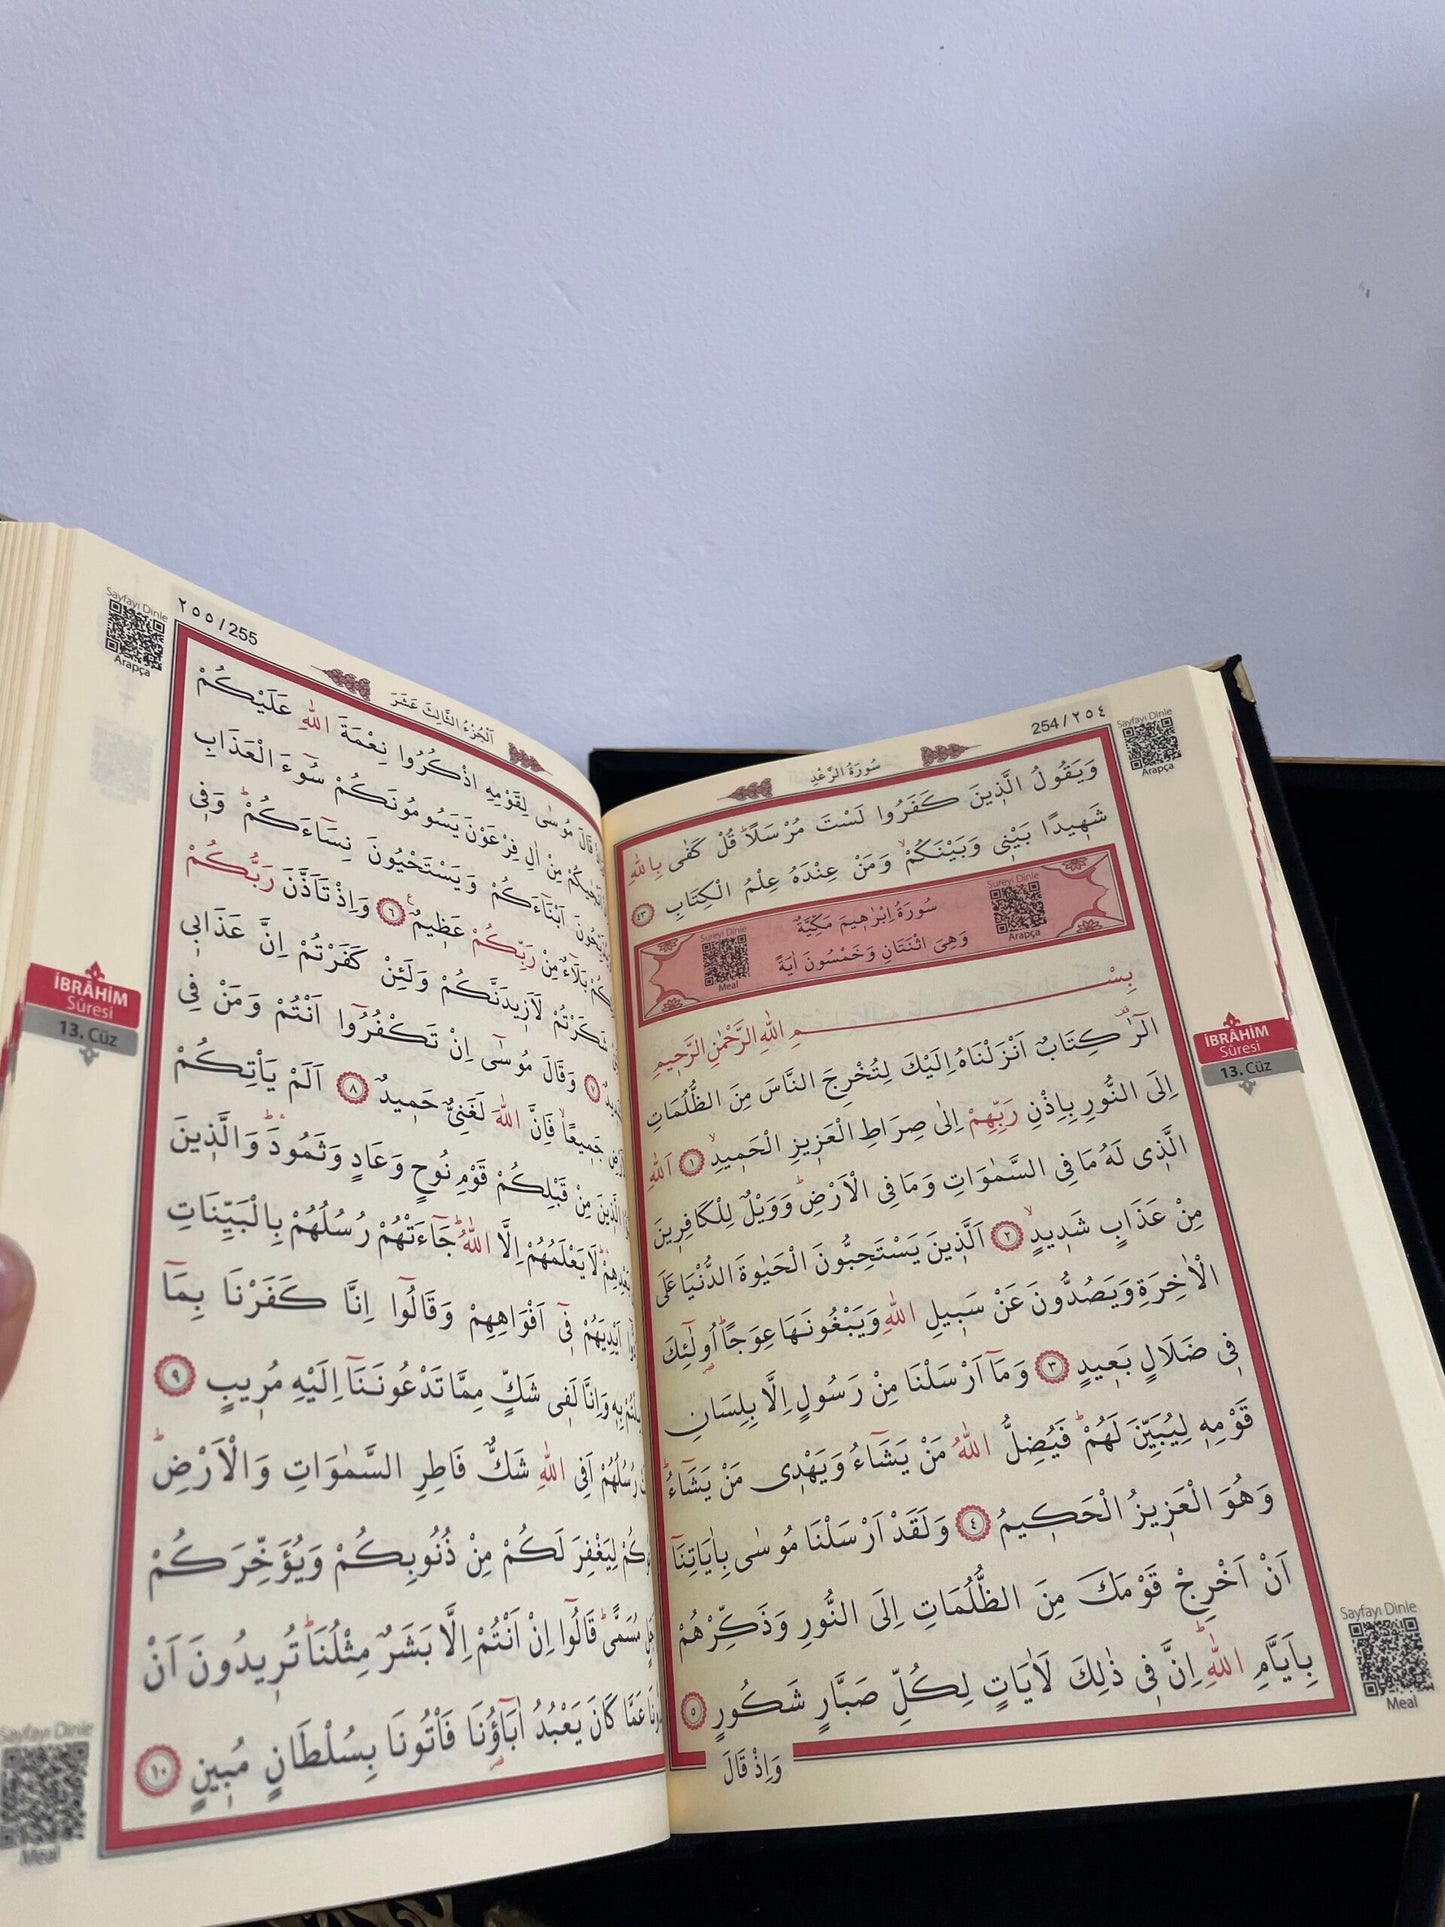 Sayfayı Dinle
Arapça
254 / ٢٥٤
سُورَةُ الرَّعْدِ
وَيَقُولُ الَّذِينَ كَفَرُوا لَسْتَ مُرْسَلًاۜ قُلْ كَفٰى بِاللّٰهِ
شَهِيدًا بَيْنِي وَبَيْنَكُمْۙ وَمَنْ عِنْدَهُ عِلْمُ الْكِتَابِ ٤٣
Sureyi Dinle
Arapça
سُورَةُ اِبْرٰهِيمَ مَكِّيَّةٌ
وَهِيَ اثْنَتَانِ وَخَمْسُونَ اٰيَةً
Sureyi Dinle
Meal
بِسْــــمِ اللّٰهِ الرَّحْمٰنِ الرَّحِيمِ
الٓرٰ۠ كِتَابٌ اَنْزَلْنَاهُ اِلَيْكَ لِتُخْرِجَ النَّاسَ مِنَ الظُّلُمَاتِ
اِلَى النُّورِ بِاِذْنِ رَبِّهِمْ اِلٰى صِرَاطِ الْعَزِيزِ الْحَمِيدِۙ ١ اَللّٰهِ
الَّذِي لَهُ مَا فِي السَّمٰوَاتِ وَمَا فِي الْاَرْضِۜ وَوَيْلٌ لِلْكَافِرِينَ
مِنْ عَذَابٍ شَدِيدٍۙ ٢ اَلَّذِينَ يَسْتَحِبُّونَ الْحَيٰوةَ الدُّنْيَا عَلَى
الْاٰخِرَةِ وَيَصُدُّونَ عَنْ سَبِيلِ اللّٰهِ وَيَبْغُونَهَا عِوَجًاۜ اُو۬لٰٓئِكَ
فِي ضَلَالٍ بَعِيدٍ ٣ وَمَٓا اَرْسَلْنَا مِنْ رَسُولٍ اِلَّا بِلِسَانِ
قَوْمِهِ لِيُبَيِّنَ لَهُمْۜ فَيُضِلُّ اللّٰهُ مَنْ يَشَٓاءُ وَيَهْدِي مَنْ يَشَٓاءُۜ
وَهُوَ الْعَزِيزُ الْحَكِيمُ ٤ وَلَقَدْ اَرْسَلْنَا مُوسٰى بِاٰيَاتِنَٓا
اَنْ اَخْرِجْ قَوْمَكَ مِنَ الظُّلُمَاتِ اِلَى النُّورِ وَذَكِّرْهُمْ
بِاَيَّامِ اللّٰهِۜ اِنَّ فِي ذٰلِكَ لَاٰيَاتٍ لِكُلِّ صَبَّارٍ شَكُورٍ ٥
وَاِذْ قَالَ
İBRÂHİM
Sûresi
13. Cüz
Sayfayı Dinle
Meal
Sayfayı Dinle
Arapça
٢٥٥ / 255
اَلْجُزْءُ الثَّالِثَ عَشَرَ
قَالَ مُوسٰى لِقَوْمِهِ اذْكُرُوا نِعْمَةَ اللّٰهِ عَلَيْكُمْ
مِنْ اٰلِ فِرْعَوْنَ يَسُومُونَكُمْ سُٓوءَ الْعَذَابِ
اَبْنَٓاءَكُمْ وَيَسْتَحْيُونَ نِسَٓاءَكُمْۜ وَفِي
بَلَٓاءٌ مِنْ رَبِّكُمْ عَظِيمٌ۟ ٦ وَاِذْ تَاَذَّنَ رَبُّكُمْ
شَكَرْتُمْ لَاَزِيدَنَّكُمْ وَلَئِنْ كَفَرْتُمْ اِنَّ عَذَابِي
٧ وَقَالَ مُوسٰٓى اِنْ تَكْفُرُٓوا اَنْتُمْ وَمَنْ فِي
جَمِيعًاۙ فَاِنَّ اللّٰهَ لَغَنِيٌّ حَمِيدٌ ٨ اَلَمْ يَاْتِكُمْ
الَّذِينَ مِنْ قَبْلِكُمْ قَوْمِ نُوحٍ وَعَادٍ وَثَمُودَۜۛ وَالَّذِينَ
لَا يَعْلَمُهُمْ اِلَّا اللّٰهُۜ جَٓاءَتْهُمْ رُسُلُهُمْ بِالْبَيِّنَاتِ
اَيْدِيَهُمْ فِٓي اَفْوَاهِهِمْ وَقَالُٓوا اِنَّا كَفَرْنَا بِمَٓا
بِهِ وَاِنَّا لَفِي شَكٍّ مِمَّا تَدْعُونَنَٓا اِلَيْهِ مُرِيبٍ ٩
رُسُلُهُمْ اَفِي اللّٰهِ شَكٌّ فَاطِرِ السَّمٰوَاتِ وَالْاَرْضِۜ
لِيَغْفِرَ لَكُمْ مِنْ ذُنُوبِكُمْ وَيُؤَخِّرَكُمْ
مُسَمًّىۜ قَالُٓوا اِنْ اَنْتُمْ اِلَّا بَشَرٌ مِثْلُنَاۜ تُرِيدُونَ اَنْ
عَمَّا كَانَ يَعْبُدُ اٰبَٓاؤُ۬نَا فَاْتُونَا بِسُلْطَانٍ مُبِينٍ ١٠
İBRÂHİM
Sûresi
13. Cüz
Sayfayı Dinle
Meal